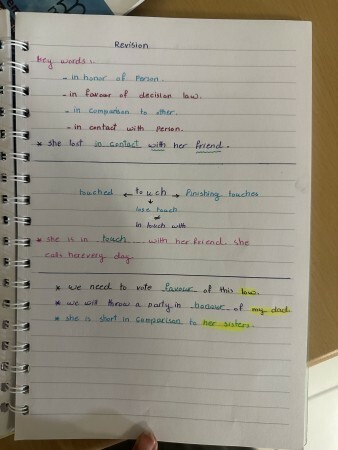 Revision
Key words:
- in honor of person.
- in favour of decision law.
- in comparison to other.
- in contact with person.
* she lost in contact with her friend.
touched ← touch → finishing touches
↓
lose touch
≠
in touch with
* she is in touch with her friend she
calls her every day.
* we need to vote favour of this law.
* we will throw a party in honour of my dad
* she is short in comparison to her sisters.